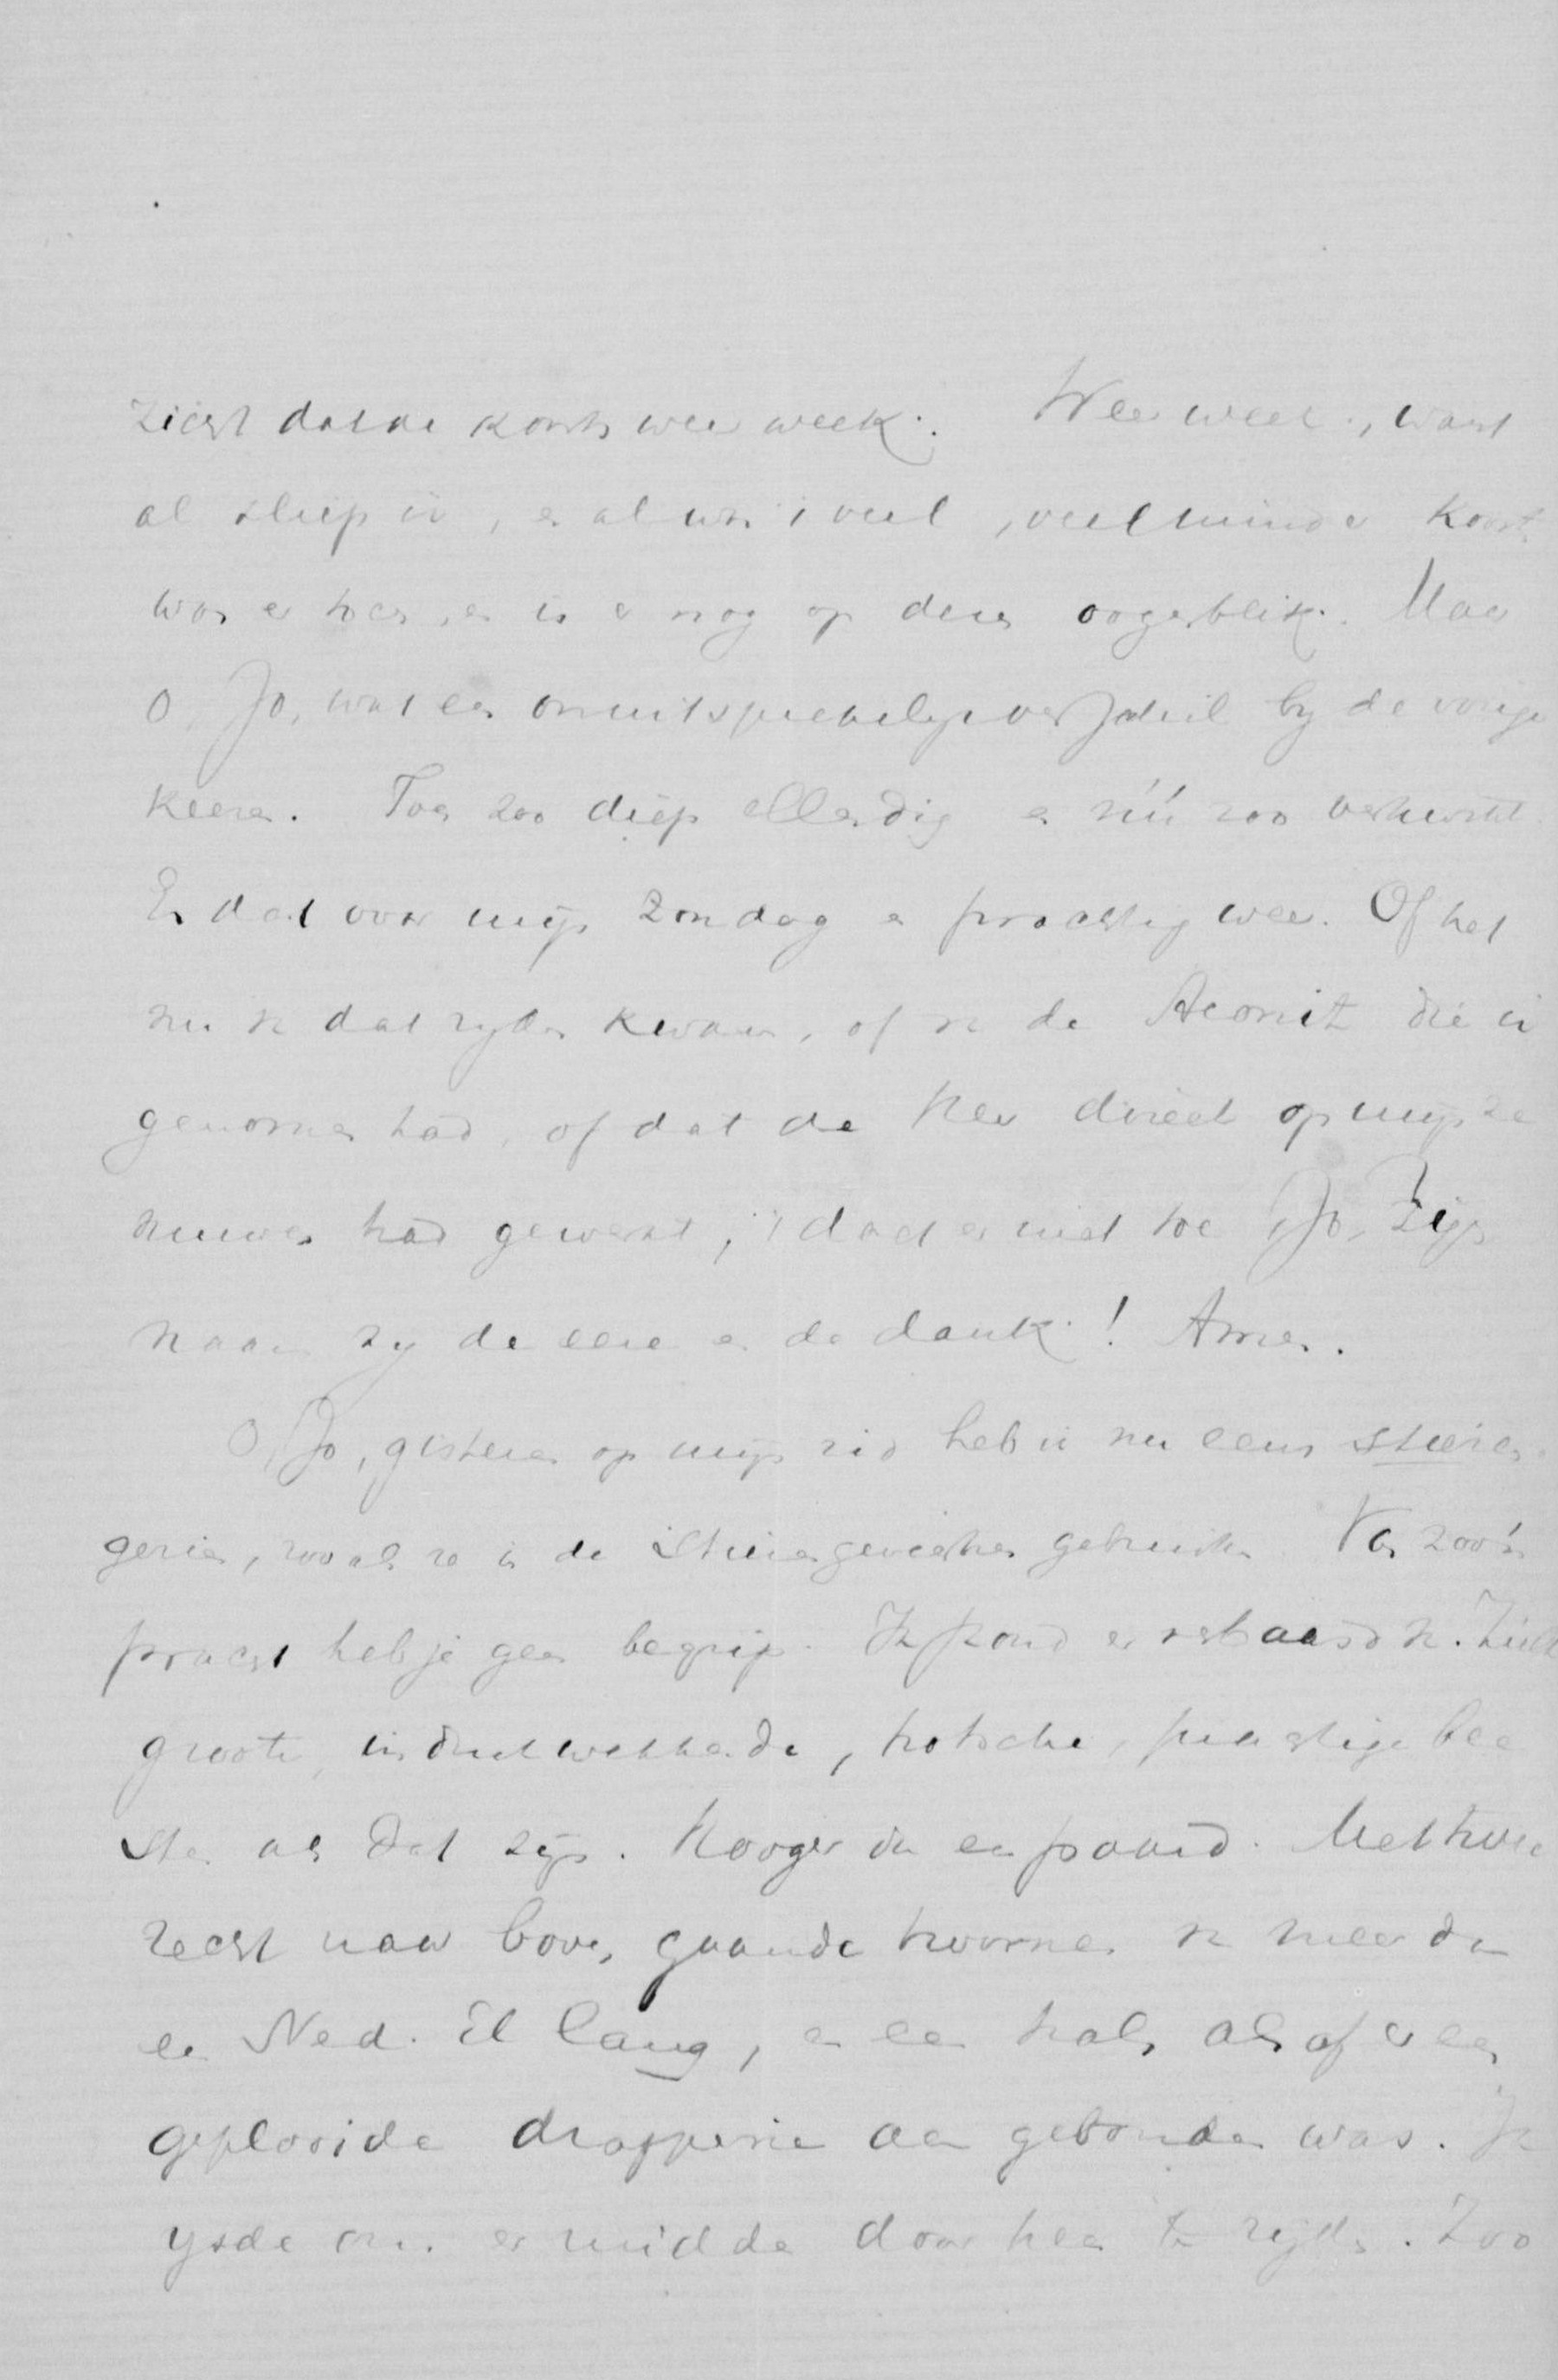 zicht dat de koorts weer week. Weer week, want
al sliep ik, en al was 't veel, veel minder koorts
was er toch, en is er nog op dezen oogenblik. Maar
O, Jo, wat een onuitsprekelijk verschil bij de vorige
keeren. Toen zoo diep ellendig en nú zoo verkwikt.
En dat voor mijn Zondag en prachtig weer. Of het
nu v dat rijden kwam, of v de Aconit die ik
genomen had, of dat de Heer direct op mijn ze
nuwen had gewerkt, 't doet er niet toe, Jo, Zijn
naam zij de eere en de dank! Amen.
O, Jo, gisteren op mijn rid heb ik nu eens stieren
gezien, zooals ze in de Stierengevechten gebruiken. Van zoo'n
pracht heb je geen begrip. Ik stond er verbaasd v. Zulke
groote, indrukwekkende, trotsche, prachtige bee
sten als dat zijn. Hooger dan een paard. Met twee
recht naar boven gaande hoornen v meer dan
een Ned. El lang, en een hals alsof er een
geplooide drapperie aan gebonden was. Ik
ijsde om er midden door heen te rijden. Zoo